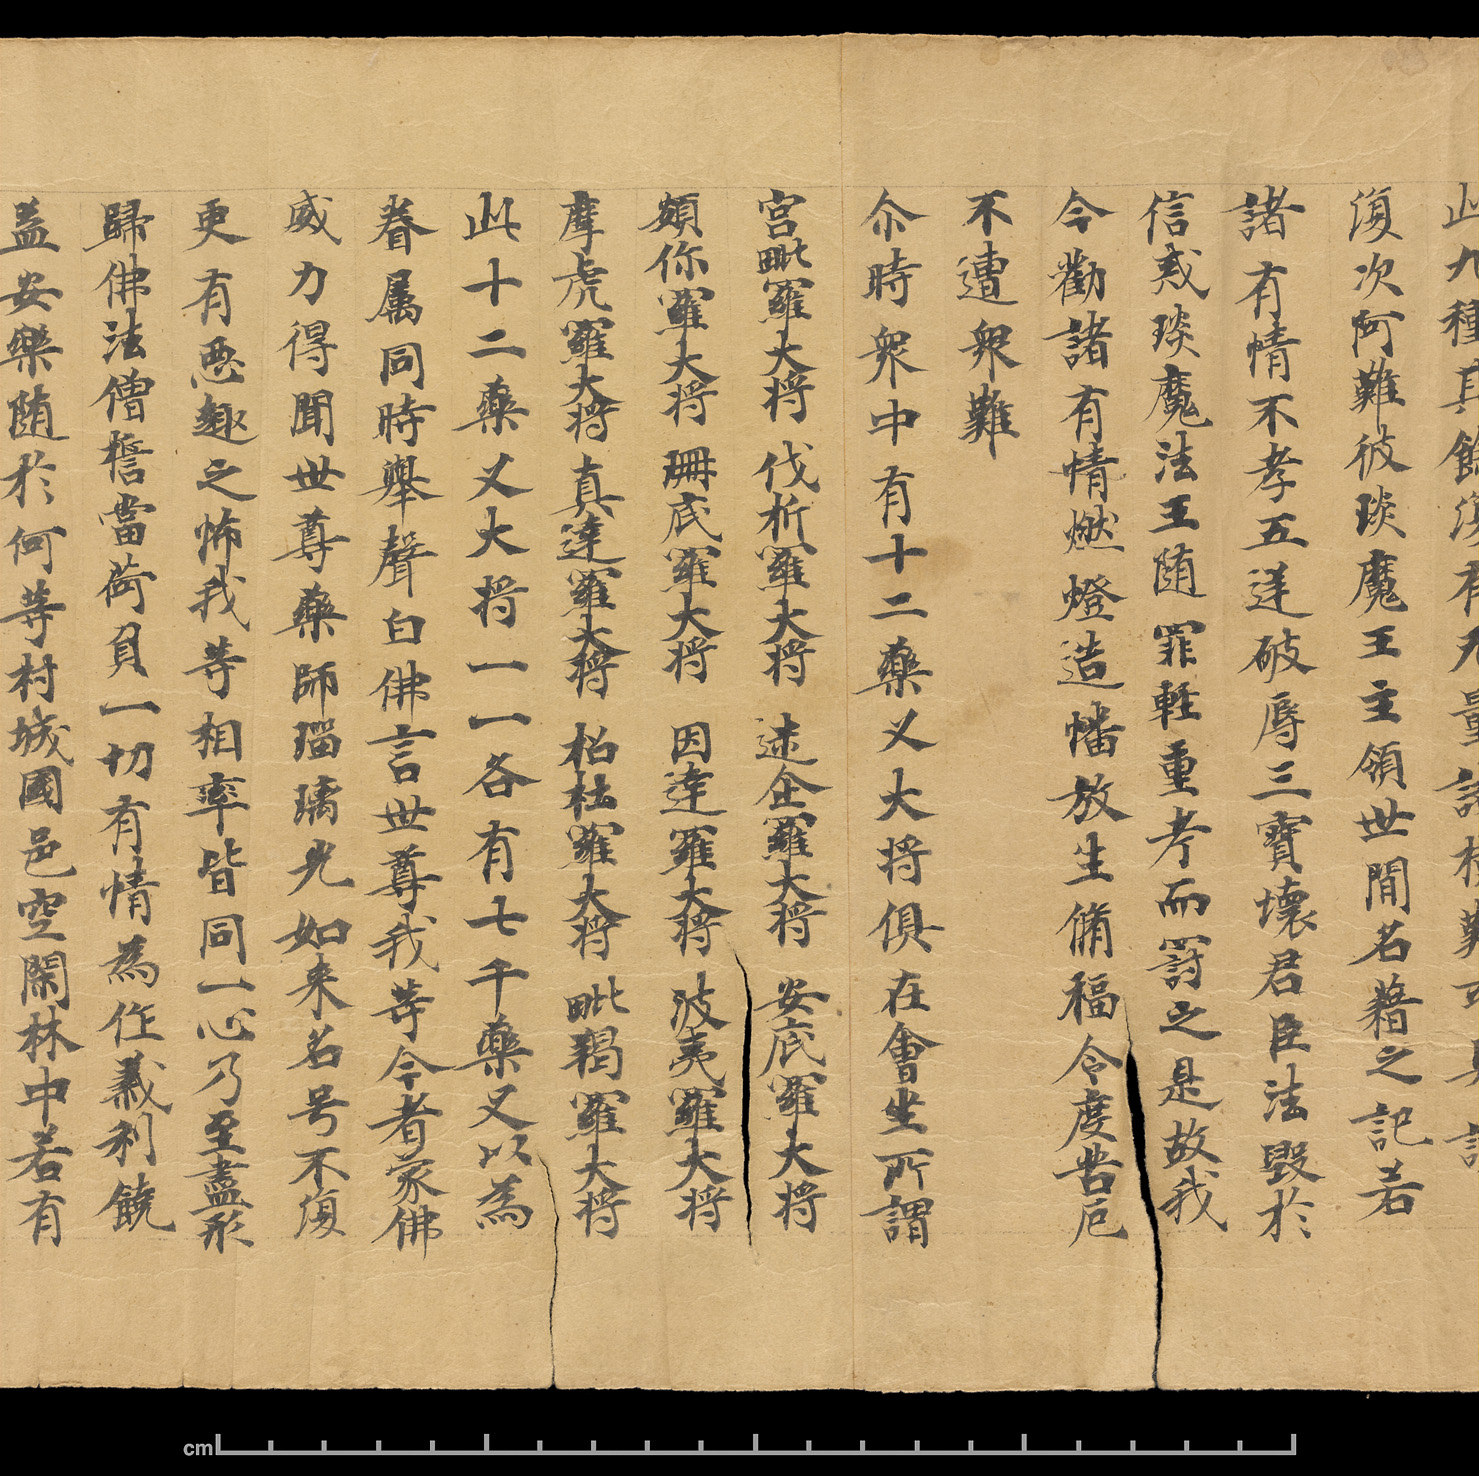 此九種具餘復有无量諸橫難可具說
復次阿難彼琰魔王主領世閒名藉之記若
諸有情不孝五逆破辱三寶壞君臣法毀於
信戒琰魔法王随罪軽重考而罸之是故我
今勸諸有情燃燈造幡放生脩福令度苦厄
不遭衆難
尒時衆中有十二藥叉大将俱在會坐所謂
宫毗羅大将 伐折羅大将 迷企羅大将 安底羅大将
頞你羅大将 珊底羅大将 因達羅大将 波夷羅大将
摩虎羅大将 真達羅大将 柖杜羅大将 毗羯羅大将
此十二藥叉大将一一各有七千藥叉以為
眷属同時舉聲白佛言世尊我等今者蒙佛
威力得聞世尊藥師瑠璃光如来名号不復
更有惡趣之怖我等相率皆同一心乃至盡形
歸佛法僧擔當荷負一切有情為作義利饒
益安樂随於何等村城國邑空閑林中若有